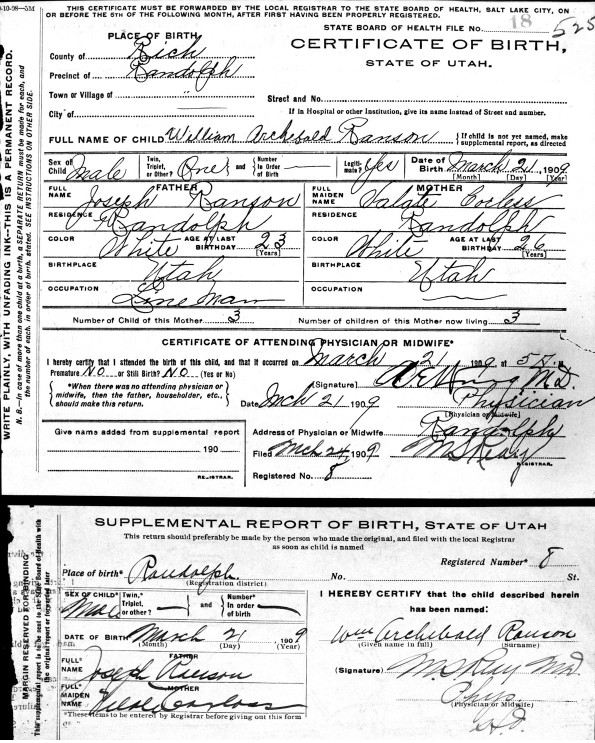 10-98-5M
THIS CERTIFICATE MUST BE FORWARDED BY THE LOCAL REGISTRAR TO THE STATE BOARD OF HEALTH, SALT LAKE CITY, ON
OR BEFORE THE 5TH OF THE FOLLOWING MONTH, AFTER FIRST HAVING BEEN PROPERLY REGISTERED.
STATE BOARD OF HEALTH FILE No. 18 525
PLACE OF BIRTH
CERTIFICATE OF BIRTH,
STATE OF UTAH.
County of Rich
Precinct of Randolph
Town or Village of "
Street and No.
City of
If in Hospital or other Institution, give its name instead of Street and number.
FULL NAME OF CHILD William Archibald Ranson { If child is not yet named, make supplemental report, as directed
Sex of Child Male Twin, Triplet, or Other? One and Number in Order of Birth Legitimate? Yes Date of Birth March 21, 1909
(Month) (Day) (Year)
FATHER
FULL NAME Joseph Ranson
RESIDENCE Randolph
COLOR White AGE AT LAST BIRTHDAY 23 (Years)
BIRTHPLACE Utah
OCCUPATION Line Man
MOTHER
FULL MAIDEN NAME Corless
RESIDENCE Randolph
COLOR White AGE AT LAST BIRTHDAY 26 (Years)
BIRTHPLACE Utah
OCCUPATION
Number of Child of this Mother 3 Number of children of this Mother now living 3
CERTIFICATE OF ATTENDING PHYSICIAN OR MIDWIFE*
I hereby certify that I attended the birth of this child, and that it occurred on March 21 1909, at 5 A. M.
Premature NO or Still Birth? NO (Yes or No)
{ *When there was no attending physician or midwife, then the father, householder, etc., should make this return. }
(Signature) M.D.
Date Mch 21 1909 Physician
(Physician or Midwife)
Give name added from supplemental report
190
REGISTRAR.
Address of Physician or Midwife Randolph
Filed Mch 24, 1909
REGISTRAR.
Registered No. 8
WRITE PLAINLY, WITH UNFADING INK—THIS IS A PERMANENT RECORD.
N. B.—In case of more than one child at a birth, a SEPARATE RETURN must be made for each, and
the number of each, in order of birth, stated. SEE INSTRUCTIONS ON OTHER SIDE.
SUPPLEMENTAL REPORT OF BIRTH, STATE OF UTAH
This return should preferably be made by the person who made the original, and filed with the local Registrar
as soon as child is named
Registered Number* 8
Place of birth* Randolph No. St.
(Registration district)
SEX OF CHILD* Male Twin,* Triplet, or other? and Number* In order of birth
DATE OF BIRTH* March 21 1909
(Month) (Day) (Year)
FATHER
FULL* NAME Joseph Ranson
MOTHER
FULL* MAIDEN NAME
*These items to be entered by Registrar before giving out this form
I HEREBY CERTIFY that the child described herein
has been named:
Wm Archibald Ranson
(Given name in full) (Surname)
(Signature) Md
Phys
(Physician or Midwife)
MARGIN RESERVED FOR BINDING
This supplemental report is to be sent to the State Board of Health with
the original report or forwarded later